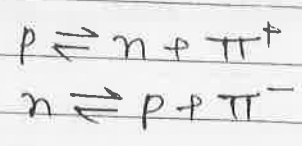 p ⇌ n + π⁺
n ⇌ p + π⁻